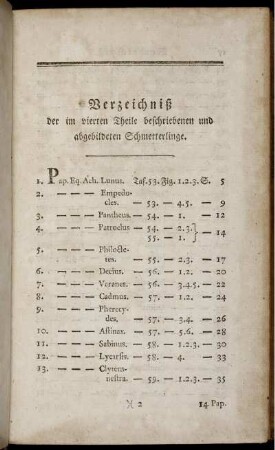 Verzeichniß
der im vierten Theile beschriebenen und
abgebildeten Schmetterlinge.
1. Pap. Eq. Ach. Lunus. Taf. 53. Fig. 1. 2. 3. S. 5
2. — — — Empedo-
cles. — 53. — 4. 5. — 9
3. — — — Pantheus. — 54. — 1. — 12
4. — — — Patroclus — 54. — 2. 3. } — 14
55. — 1.
5. — — — Philocte-
tes. — 55. — 2. 3. — 17
6. — — — Decius. — 56. — 1. 2. — 20
7. — — — — 56. — 3. 4. 5. — 22
8. — — — Cadmus. — 57. — 1. 2. — 24
9. — — — Pherecy-
des. — 57. — 3. 4. — 26
10. — — — Astinax. — 57. — 5. 6. — 28
11. — — — Sabinus. — 58. — 1. 2. 3. — 30
12. — — — — 58. — 4. — 33
13. — — — Clytem-
nestra. — 59. — 1. 2. 3. — 35
)( 2 14. Pap.